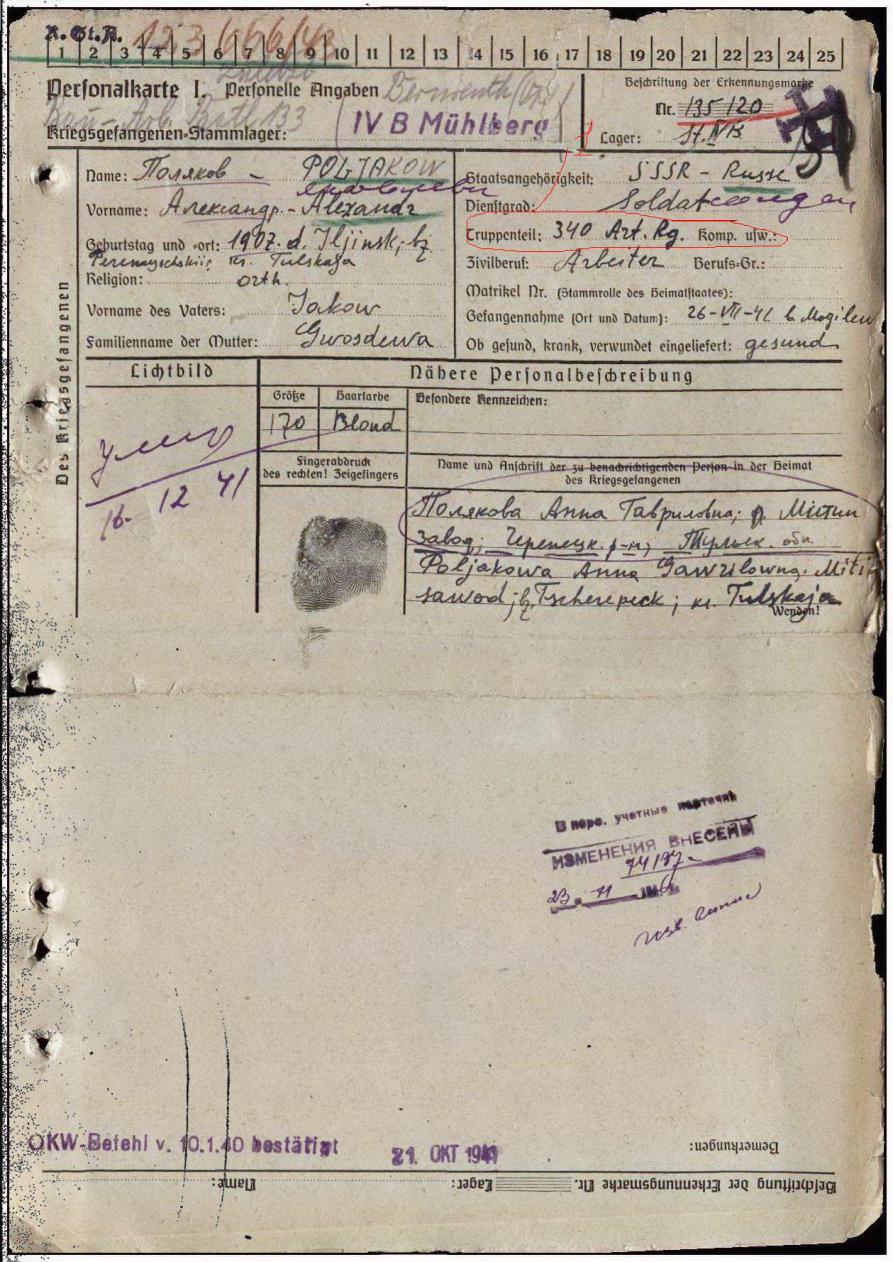 X. St. A. 123/666/43
1 2 3 4 5 6 7 8 9 10 11 12 13 14 15 16 17 18 19 20 21 22 23 24 25
Personalkarte I. Personelle Angaben
Bau-Arb. Batl 133
Kriegsgefangenen-Stammlager: IV B Mühlberg
Beschriftung der Erkennungsmarke
Nr. 135120
Lager: St. IVB
1
Des Kriegsgefangenen
Name: Поляков - POLJAKOW
Vorname: Александр. - Alexandr
Geburtstag und -ort: 1907. d. Iljinsk; bz
Peremyschskii; Kr. Tulskaja
Religion: orth.
Vorname des Vaters: Jakow
Familienname der Mutter: Gwosdewa
Staatsangehörigkeit: SSSR - Russe
Dienstgrad: Soldat
Truppenteil: 340 Art. Rg. Komp. usw.:
Zivilberuf: Arbeiter Berufs-Gr.:
Matrikel Nr. (Stammrolle des Heimatstaates):
Gefangennahme (Ort und Datum): 26-VII-41 b. Mogilew
Ob gesund, krank, verwundet eingeliefert: gesund
Lichtbild
умер
16. 12 41
Nähere Personalbeschreibung
Größe Haarfarbe Besondere Kennzeichen:
170 Blond
Fingerabdruck
des rechten! Zeigefingers
Name und Anschrift der zu benachrichtigenden Person in der Heimat
des Kriegsgefangenen
Полякова Анна Гавриловна; Митин
завод; Черепецк. р-н; Тульск. обл.
Poljakowa Anna Gawrilowna. Mitin
sawod; bz Tscherepeck; kr. Tulskaja
Wenden!
В перс. учетные карточки
ИЗМЕНЕНИЯ ВНЕСЕНЫ
74197
23 11
OKW-Befehl v. 10.1.40 bestätigt
21. OKT 1941
Bemerkungen:
Beschriftung der Erkennungsmarke Nr. Lager: Name: